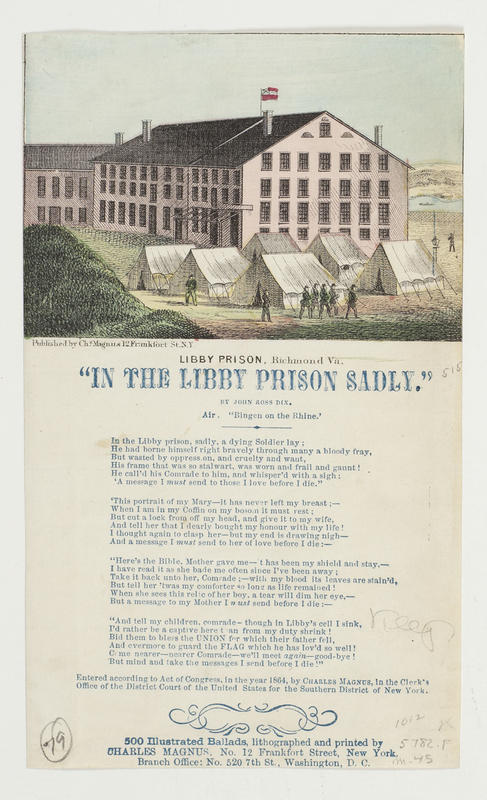 Published by Chs. Magnus 12 Frankfort St. N.Y
LIBBY PRISON, Richmond Va.
"IN THE LIBBY PRISON SADLY."
BY JOHN ROSS DIX.
Air. "Bingen on the Rhine.'
In the Libby prison, sadly, a dying Soldier lay;
He had borne himself right bravely through many a bloody fray,
But wasted by oppress on, and cruelty and want,
His frame that was so stalwart, was worn and frail and gaunt!
He call'd his Comrade to him, and whisper'd with a sigh:
'A message I must send to those I love before I die."
'This portrait of my Mary—it has never left my breast;—
When I am in my Coffin on my bosom it must rest;
But cut a lock from off my head, and give it to my wife,
And tell her that I dearly bought my honour with my life!
I thought again to clasp her—but my end is drawing nigh—
And a message I must send to her of love before I die:—
"Here's the Bible, Mother gave me—'t has been my shield and stay,—
I have read it as she bade me often since I've been away;
Take it back unto her, Comrade;—with my blood its leaves are stain'd,
But tell her 'twas my comforter so long as life remained!
When she sees this relic of her boy, a tear will dim her eye,—
But a message to my Mother I must send before I die:—
"And tell my children, comrade— though in Libby's cell I sink,
I'd rather be a captive here t an from my duty shrink!
Bid them to bless the UNION for which their father fell,
And evermore to guard the FLAG which he has lov'd so well!
Come nearer—nearer Comrade—we'll meet again—good-bye!
'But mind and take the messages I send before I die!"
Entered according to Act of Congress, in the year 1864, by CHARLES MAGNUS, in the Clerk's
Office of the District Court of the United States for the Southern District of New York.
500 Illustrated Ballads, lithographed and printed by
CHARLES MAGNUS, No. 12 Frankfort Street, New York.
Branch Office: No. 520 7th St., Washington, D. C.
79
1012
5782.F
m.45
515